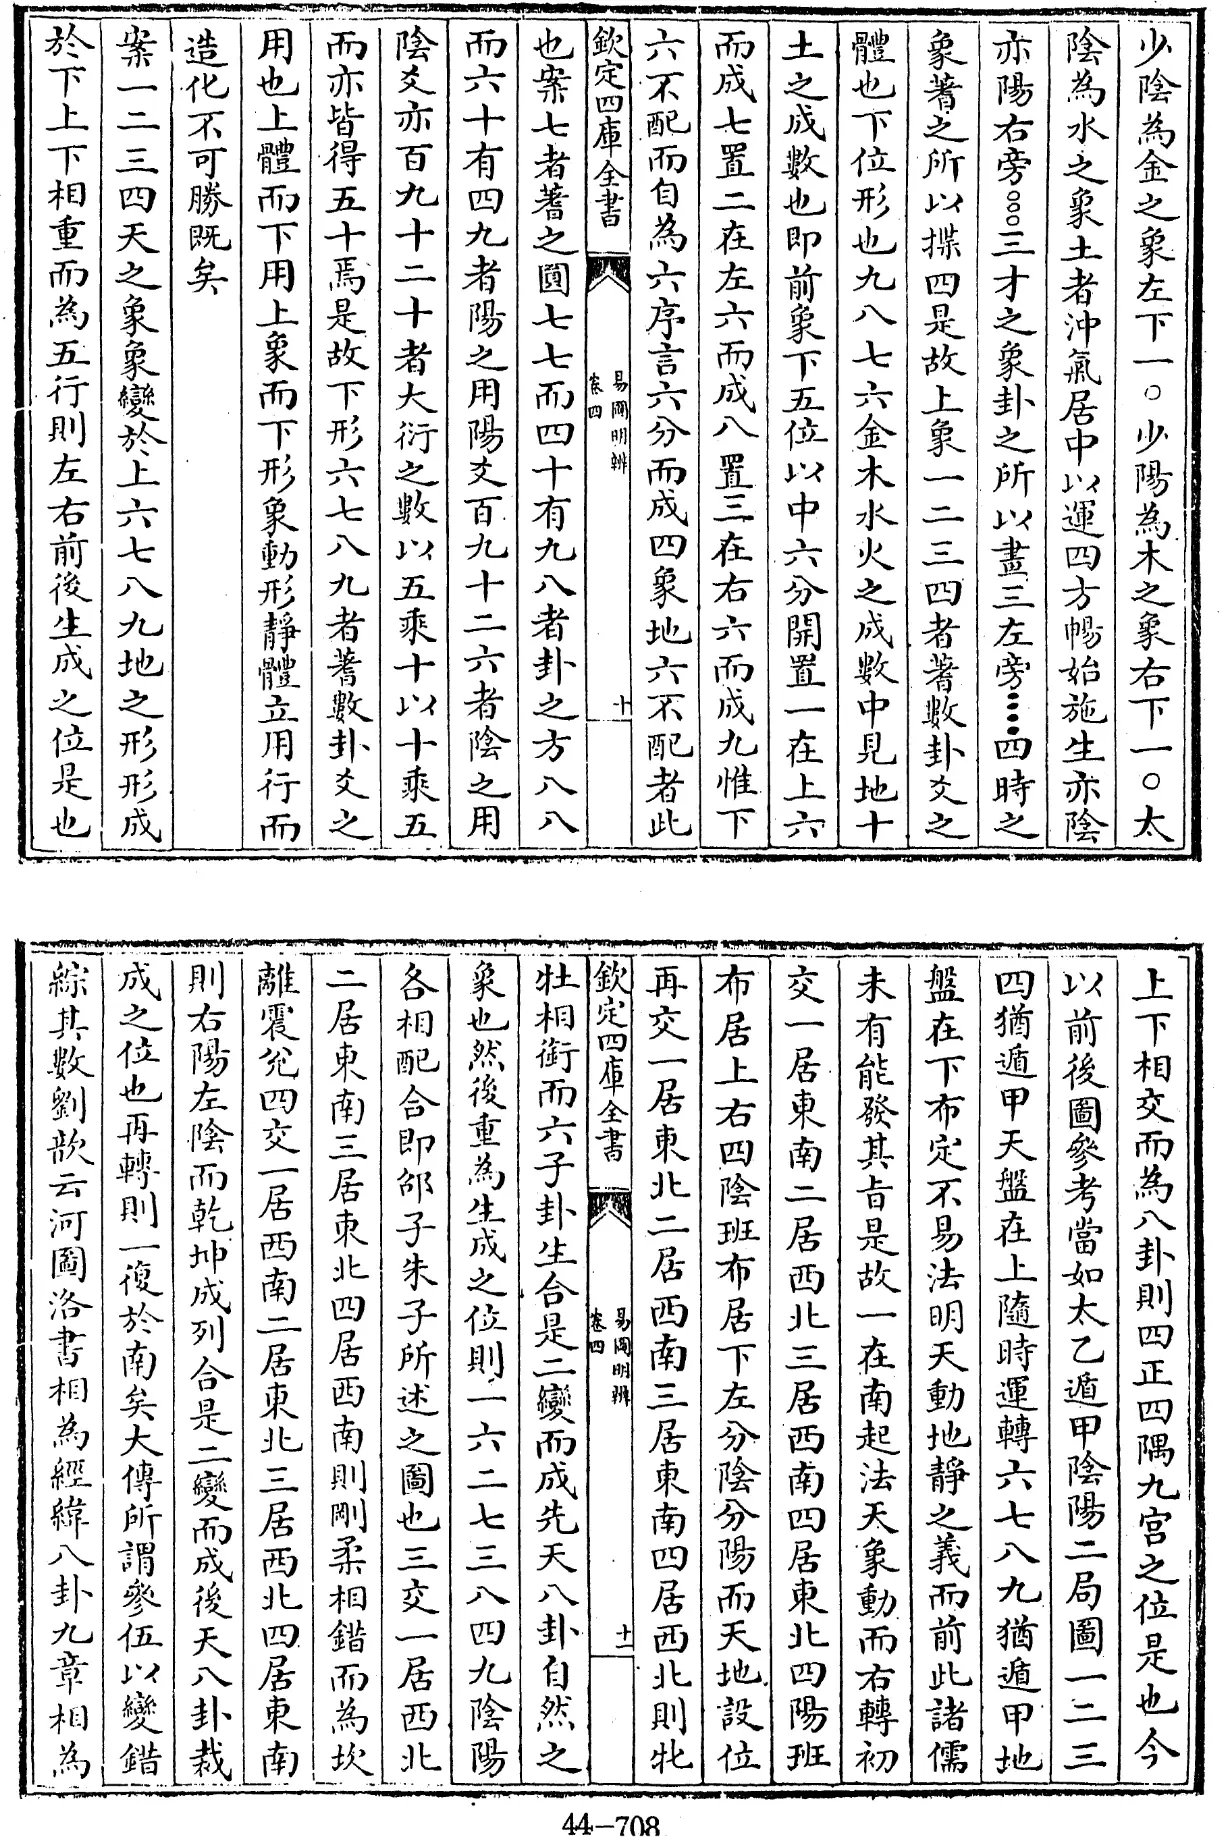 少陰為金之象左下一○少陽為木之象右下一○太
陰為水之象土者沖氣居中以運四方暢始施生亦陰
亦陽右旁○○○三才之象卦之所以畫三左旁••••四時之
象蓍之所以揲四是故上象一二三四者蓍數卦爻之
體也下位形也九八七六金木水火之成數中見地十
土之成數也即前象下五位以中六分開置一在上六
而成七置二在左六而成八置三在右六而成九惟下
六不配而自為六序言六分而成四象地六不配者此
欽定四庫全書
易圖明辨
卷四
十
也案七者蓍之圓七七而四十有九八者卦之方八八
而六十有四九者陽之用陽爻百九十二六者陰之用
陰爻亦百九十二十者大衍之數以五乘十以十乘五
而亦皆得五十焉是故下形六七八九者蓍數卦爻之
用也上體而下用上象而下形象動形靜體立用行而
造化不可勝既矣
案一二三四天之象象變於上六七八九地之形形成
於下上下相重而為五行則左右前後生成之位是也
上下相交而為八卦則四正四隅九宮之位是也今
以前後圖參考當如太乙遁甲陰陽二局圖一二三
四猶遁甲天盤在上隨時運轉六七八九猶遁甲地
盤在下布定不易法明天動地靜之義而前此諸儒
未有能發其旨是故一在南起法天象動而右轉初
交一居東南二居西北三居西南四居東北四陽班
布居上右四陰班布居下左分陰分陽而天地設位
再交一居東北二居西南三居東南四居西北則牝
欽定四庫全書
易圖明辨
卷四
十一
牡相銜而六子卦生合是二變而成先天八卦自然之
象也然後重為生成之位則一六二七三八四九陰陽
各相配合即邵子朱子所述之圖也三交一居西北
二居東南三居東北四居西南則剛柔相錯而為坎
離震兌四交一居西南二居東北三居西北四居東南
則右陽左陰而乾坤成列合是二變而成後天八卦裁
成之位也再轉則一復於南矣大傳所謂參伍以變錯
綜其數劉歆云河圖洛書相為經緯八卦九章相為
44-708